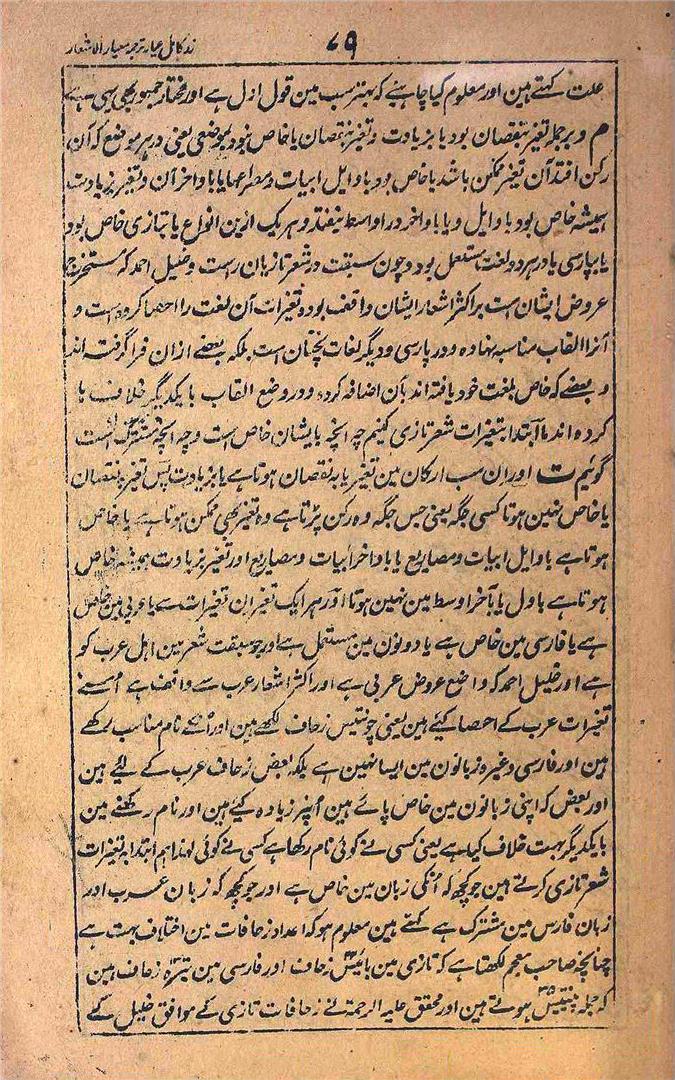 زر کامل عیار ترجمہ معیار الاشعار
۷۹
علت کہتے ہین اور معلوم کیا چاہئیے کہ بہتر سب مین قول اول ہے اور مختار جمہور بھی یہی ہے
م و بر جملہ تغیر بنقصان بود یا بزیادت و تغیر بنقصان یا خاص نبود بموضعی یعنی در ہر موضع کہ آن
رکن افتد آن تغیر ممکن باشد یا خاص بود باوایل ابیات و مصراعہا یا باواخر آن و تغیر بزیادت
ہمیشہ خاص بود باوایل و یا باواخر در اواسط نیفتد و ہر یک ازین انواع یا بتازی خاص بود
یا بپارسی یا در ہر دو لغت مستعمل بود و چون سبقت در شعر تازیان راست و خلیل احمد کہ مستخرج
عروض ایشان است بر اکثر اشعار ایشان واقف بودہ تغیرات آن لغت را احصا کردہ است و
آنرا القاب مناسبہ نہادہ و در پارسی و دیگر لغات نچنان است بلکہ بعضے ازان فرا گرفتہ اند
و بعضے کہ خاص بلغت خود یافتہ اند بآن اضافہ کردہ و در وضع القاب با یکدیگر خلاف ہا
کردہ اند ما ابتدا بتغیرات شعر تازی کنیم چہ انچہ بایشان خاص است و چہ انچہ مشترک است
گوئیم ت اور ان سب ارکان مین تغیر یا بہ نقصان ہوتا ہے یا بزیادت پس تغیر بہ نقصان
یا خاص نہین ہوتا کسی جگہ یعنی جس جگہ وہ رکن پڑتا ہے وہ تغیر بھی ممکن ہوتا ہے یا خاص
ہوتا ہے باوایل ابیات و مصاریع یا باواخر ابیات و مصاریع اور تغیر بزیادت ہمیشہ خاص
ہوتا ہے باول یا بآخر اوسط مین نہین ہوتا اور ہر ایک تغیر ان تغیرات سے یا عربی مین خاص
ہے یا فارسی مین خاص ہے یا دونون مین مستعمل ہے اور جو سبقت شعر مین اہل عرب کو
ہے اور خلیل احمد کہ واضع عروض عربی ہے اور اکثر اشعار عرب سے واقف ہے اُسنے
تغیرات عرب کے احصا کیئے ہین یعنی چونتیس زحاف لکھے ہین اور اُنکے نام مناسب رکھے
ہین اور فارسی وغیرہ زبانون مین ایسا نہین ہے بلکہ بعض زحاف عرب کے لئیے ہین
اور بعض کہ اپنی زبانون مین خاص پائے ہین اُنپر زیادہ کئے ہین اور نام رکھنے مین
با یکدیگر بہت خلاف کیا ہے یعنی کسی نے کوئی نام رکھا ہے کسی نے کوئی لہذا ہم ابتدا بہ تغیرات
شعر تازی کرتے ہین جو کچھ کہ اُنکی زبان مین خاص ہے اور جو کچھ کہ زبان عرب اور
زبان فارس مین مشترک ہے کہتے ہین معلوم ہو کہ اعداد زحافات مین اختلاف بہت ہے
چنانچہ صاحب معجم لکھتا ہے کہ تازی مین بائیس ۲۲ زحاف اور فارسی مین تیرہ ۱۳ زحاف ہین
کہ جملہ پینتیس ۳۵ ہوئے ہین اور محقق علیہ الرحمۃ نے زحافات تازی کے موافق خلیل کے